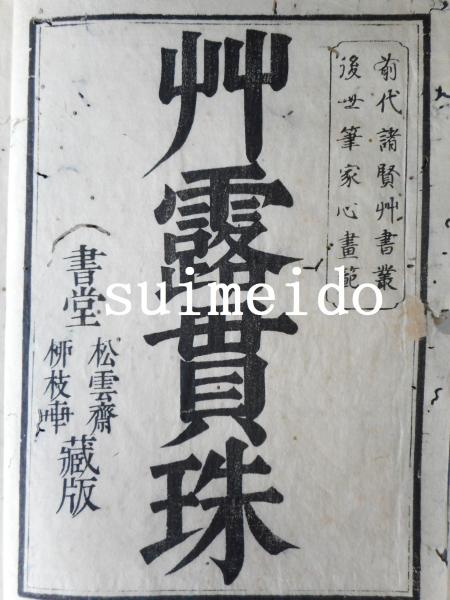 前代諸賢艸書叢
後世筆家心畫範
艸露貫珠
書堂
松雲齋
柳枝軒
藏版
suimeido